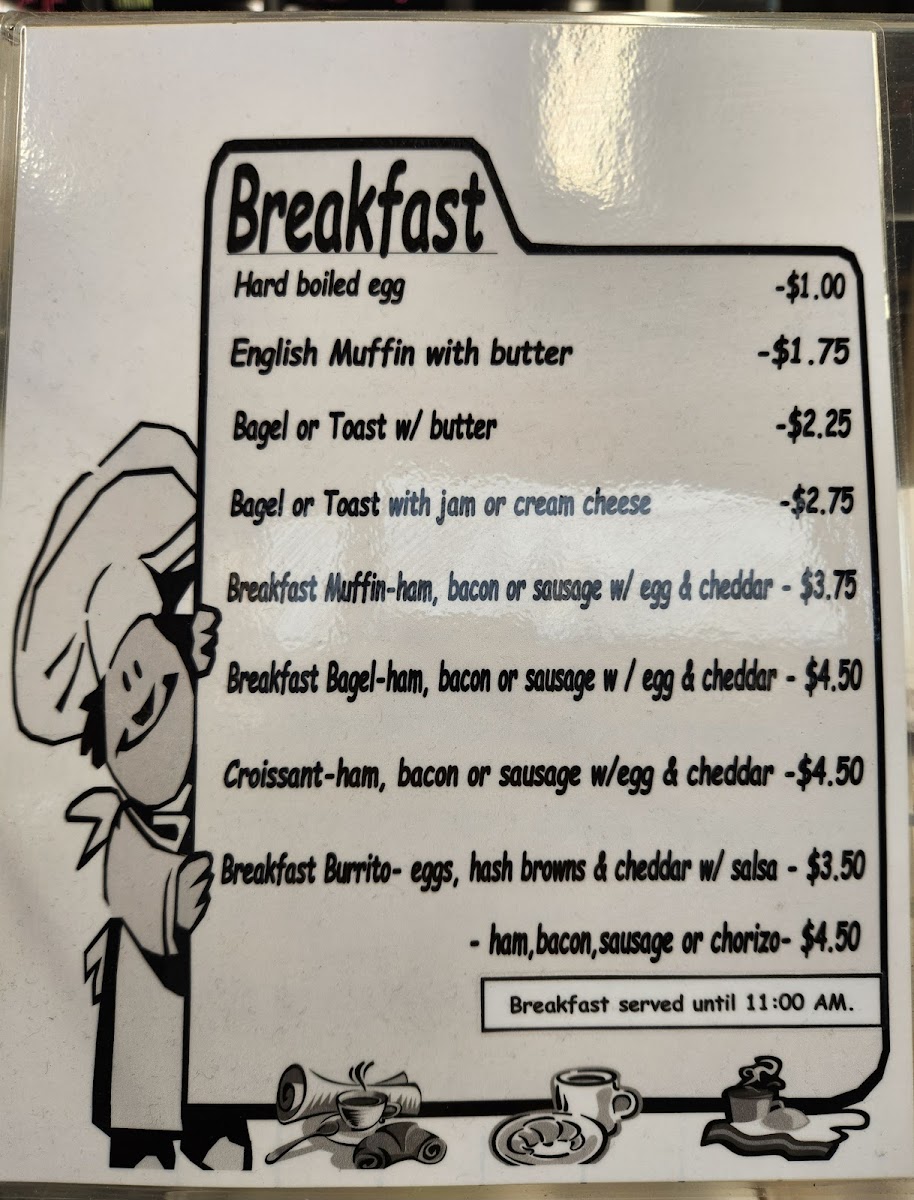 Breakfast
Hard boiled egg -$1.00
English Muffin with butter -$1.75
Bagel or Toast w/ butter -$2.25
Bagel or Toast with jam or cream cheese -$2.75
Breakfast Muffin-ham, bacon or sausage w/ egg & cheddar - $3.75
Breakfast Bagel-ham, bacon or sausage w / egg & cheddar - $4.50
Croissant-ham, bacon or sausage w/egg & cheddar -$4.50
Breakfast Burrito- eggs, hash browns & cheddar w/ salsa - $3.50
- ham,bacon,sausage or chorizo- $4.50
Breakfast served until 11:00 AM.